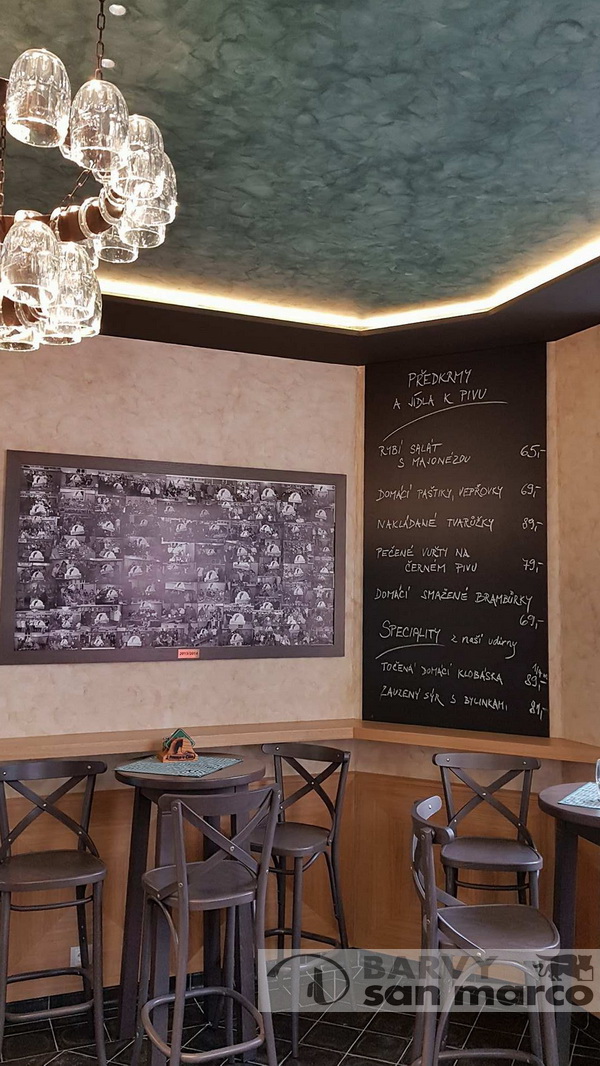 PŘEDKRMY
A JÍDLA K PIVU
RYBÍ SALÁT
S MAJONÉZOU 65,-
DOMÁCÍ PAŠTIKY, VEPŘOVKY 69,-
NAKLÁDANÉ TVARŮŽKY 89,-
PEČENÉ VUŘTI NA
ČERNÉM PIVU 79,-
DOMÁCÍ SMAŽENÉ BRAMBŮRKY
69,-
SPECIALITY z naší udírny
TOČENÁ DOMÁCÍ KLOBÁSKA 89,-
ZAUZENÝ SÝR S BYLINKAMI 89,-
BARVY
san marco